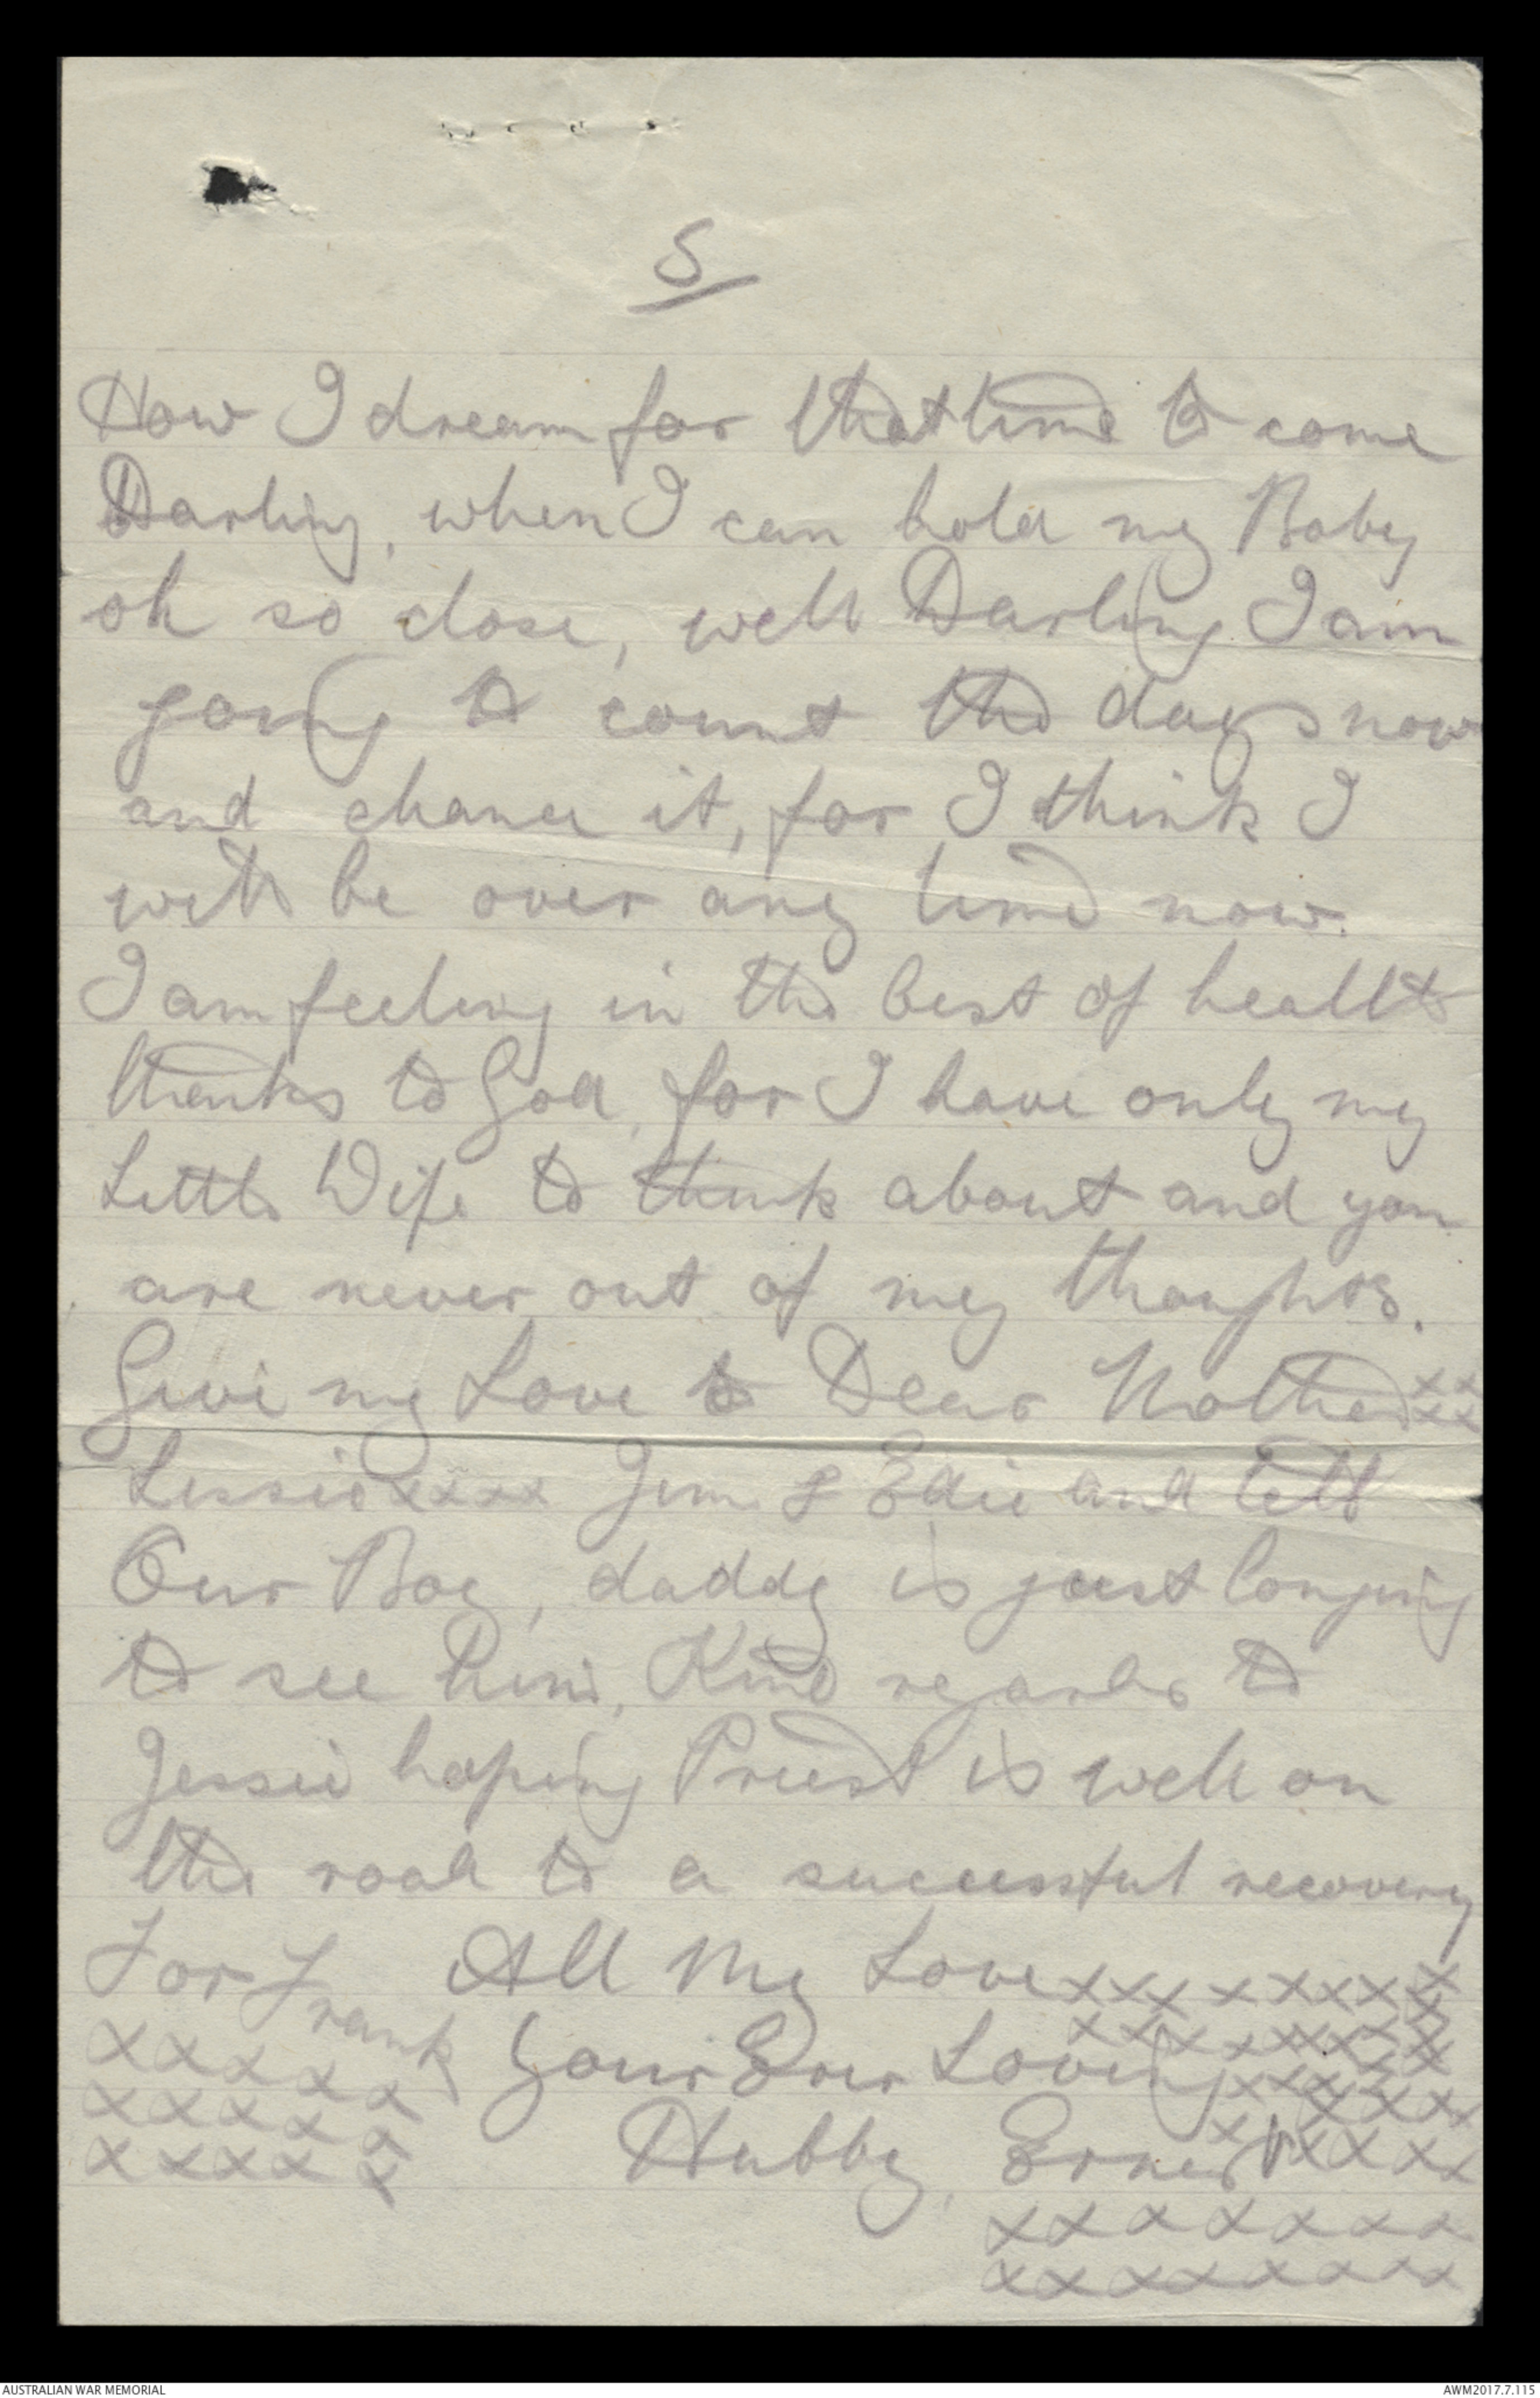 5
How I dream for that time to come
Darling, when I can hold my Baby
oh so close, well Darling I am
going to count the days now
and chance it, for I think I
will be over any time now.
I am feeling in the best of health
thanks to God, for I have only my
Little Wife to think about and you
are never out of my thoughts.
Give my Love to Dear Mother xxxx
Lessie xxxx Jim & Edie and tell
Our Boy, daddy is just longing
to see him, Kind regards to
Jessie hoping Priest is well on
the road to a successful recovery
For Frank All My Love xxxxxxxxx
xxxxx Your Ever Loving xxxxxx
xxxxx Hubby, Ernest xxxxx
xxxxx
xxxxxxx
xxxxxxxx
AUSTRALIAN WAR MEMORIAL
AWM2017.7.115